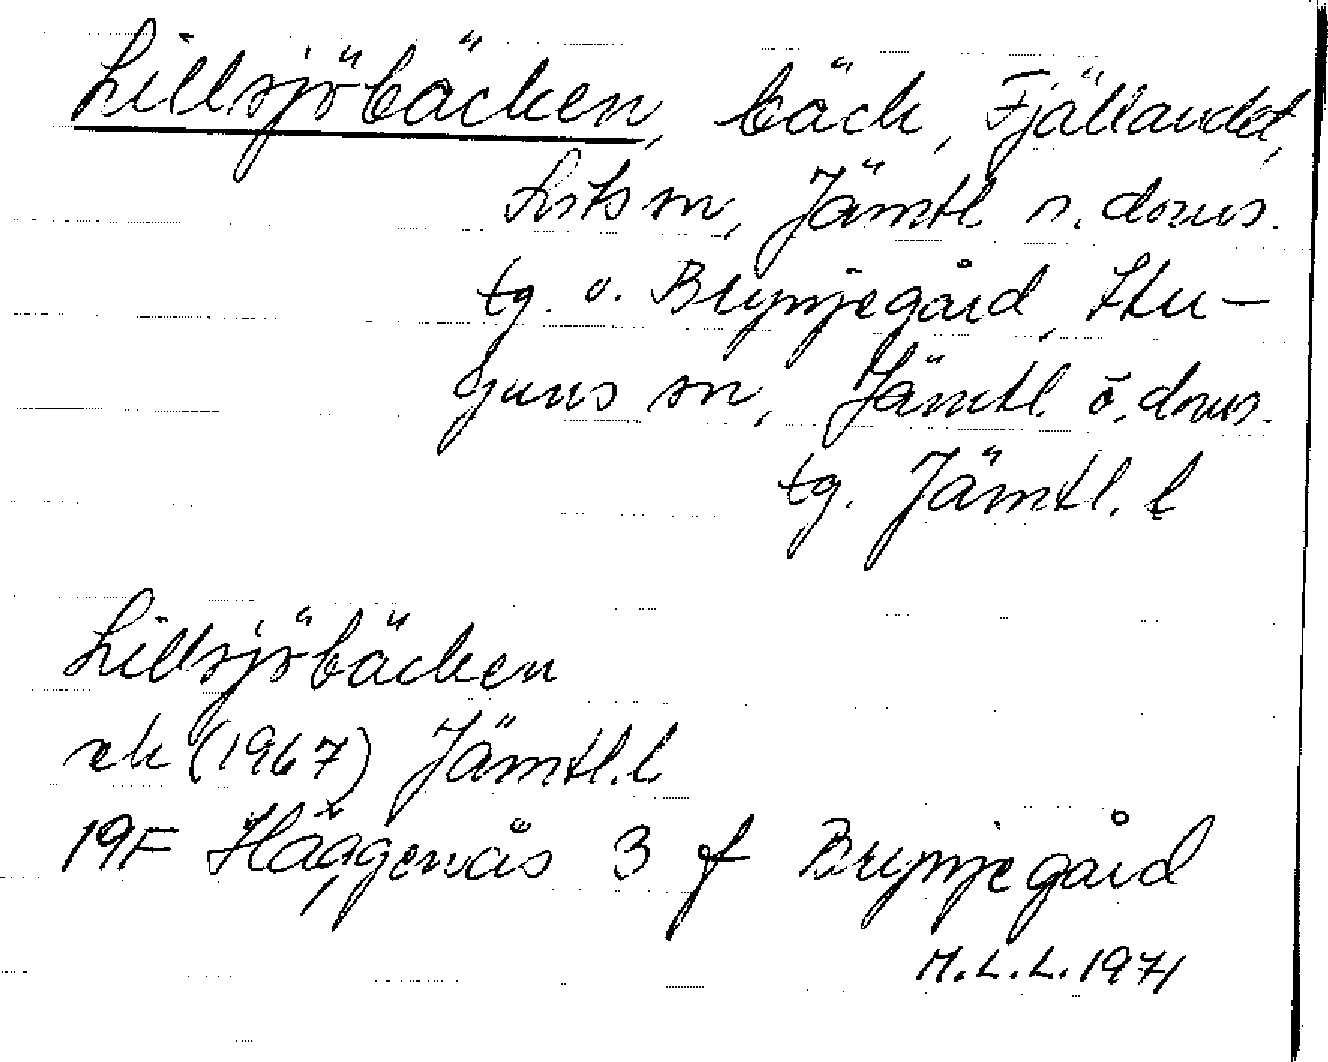 Lillsjöbäcken, bäck, Fjällandet,
Lits sn, Jämtl. n. doms.
tg. o. Brynjegård, Stu-
guns sn, Jämtl. ö. doms.
tg. Jämtl. l
Lillsjöbäcken
ek (1967) Jämtl. l
19F Häggenås 3 f Brynjegård
M.L.L. 1971